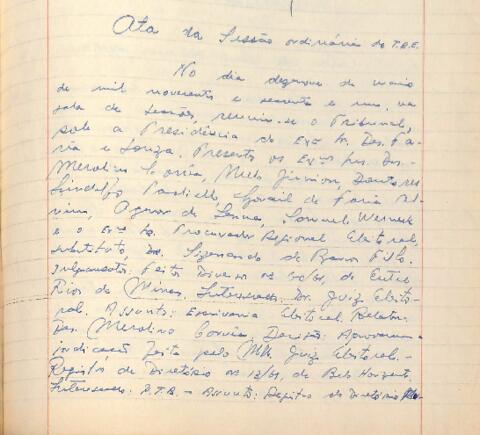 Ata da Sessão ordinária do T.R.E.
No dia dezenove de maio
de mil novecentos e sessenta e um, na
sala de sessões, reuniu-se o Tribunal,
sob a Presidência do Exmº Sr. Des. Fa-
ria e Souza. Presentes os Exmºs Srs. Des.
Merolino Corrêa, Mello Júnior, Doutores
Lindolfo Paoliello, de Faria Al-
vim, de Senna, Samuel Werneck
e o Exmº Sr. Procurador Regional Eleitoral,
substituto, Dr. de Barros Filho.
Julgamentos. Feitos Diversos nº 30/61, de Entre
Rios de Minas. Interessado, Dr. Juiz Eleito-
ral. Assunto: Escrivania Eleitoral. Relator:
Des. Merolino Corrêa. Decisão: Aprovaram a
indicação feita pelo MM. Juiz Eleitoral. -
Registro de Diretório nº 12/61, de Belo Horizonte.
Interessado: P.T.B. - Assunto: Registro do Diretório